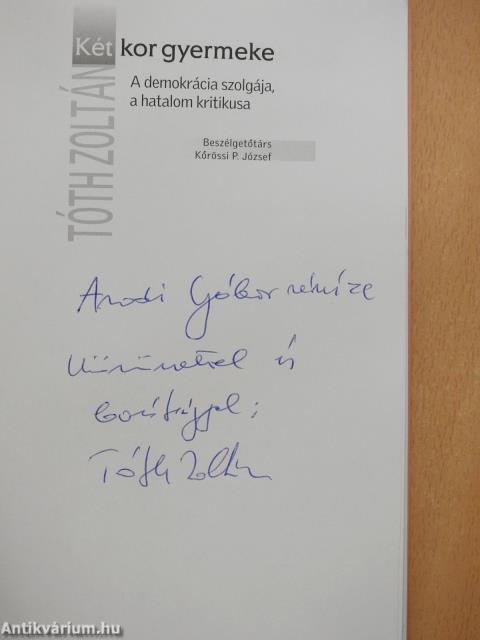 TÓTH ZOLTÁN
Két kor gyermeke
A demokrácia szolgája,
a hatalom kritikusa
Beszélgetőtárs
Kőrössi P. József
Gábor részére
és
barátsággal:
Tóth Zoltán
Antikvárium.hu